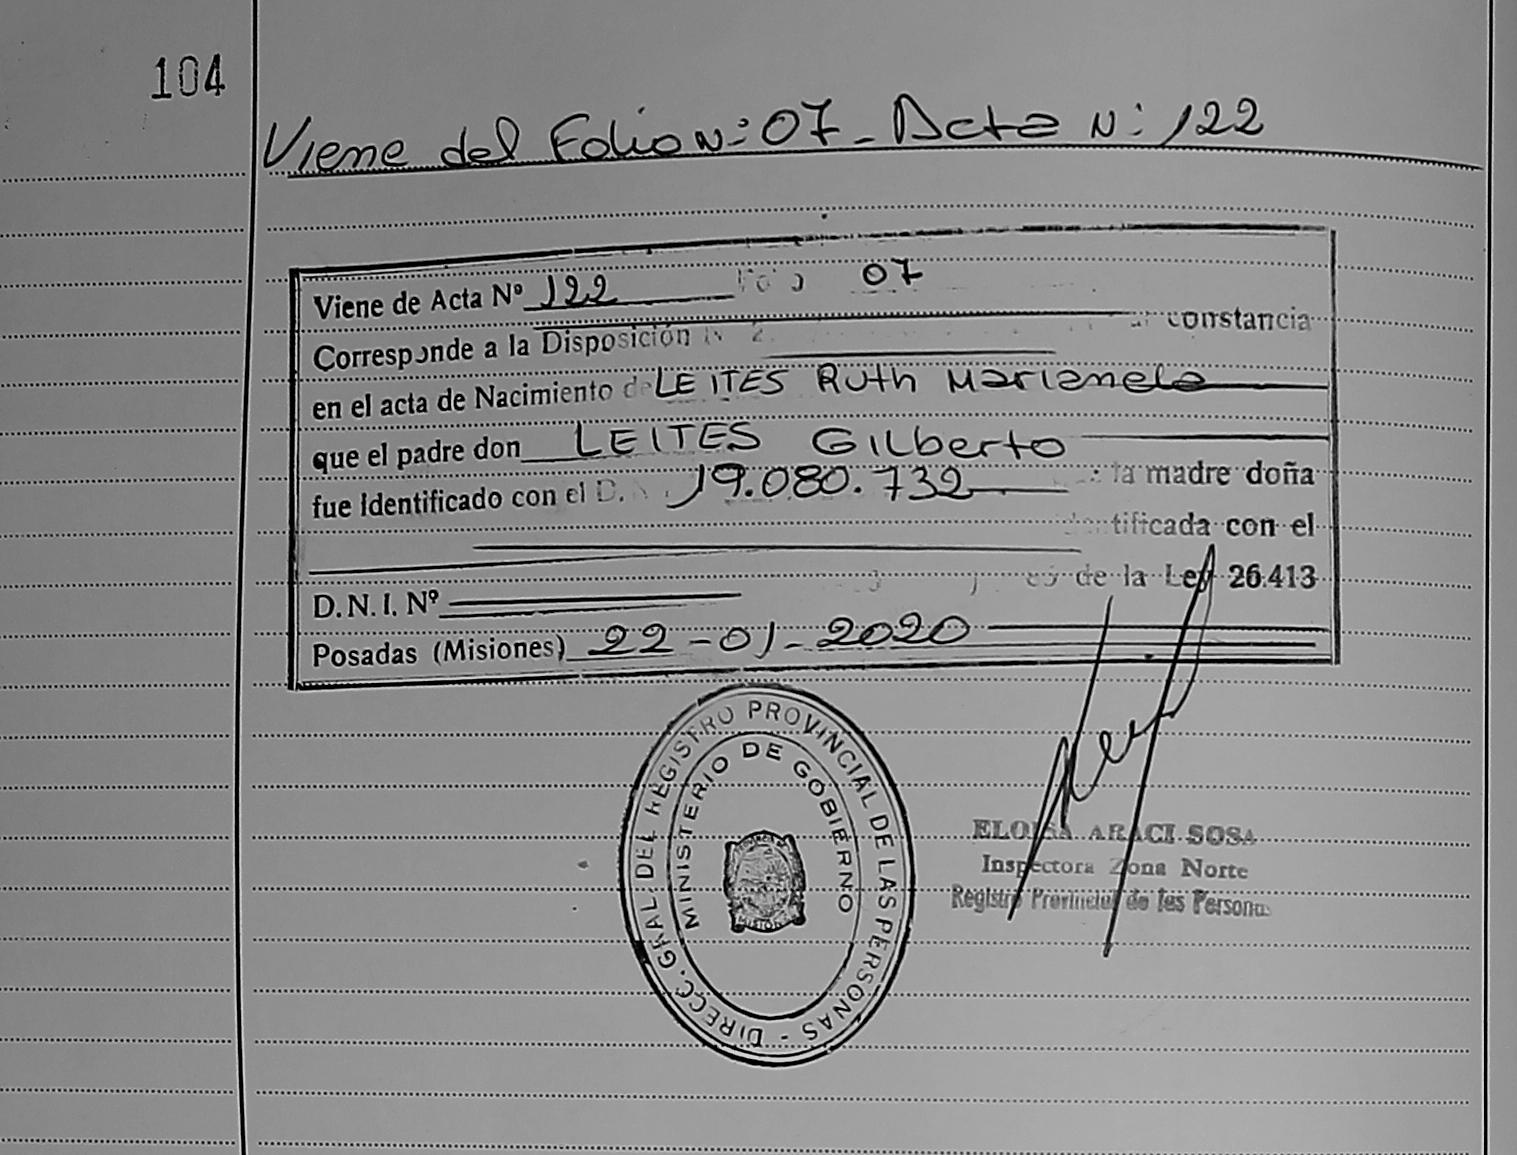 104
Viene del Folio N: 07 - Acta N: 122
Viene de Acta Nº 122 07
constancia
Corresponde a la Disposición
en el acta de Nacimiento de LEITES Ruth Marianela
que el padre don LEITES Gilberto
fue Identificado con el D. 19.080.732 la madre doña
identificada con el
de la Ley 26.413
D.N.I. Nº
Posadas (Misiones) 22-01-2020
DIRECC. GRAL. DEL REGISTRO PROVINCIAL DE LAS PERSONAS -
MINISTERIO DE GOBIERNO
ELOISA ARACI SOSA
Inspectora Zona Norte
Registro Provincial de las Personas